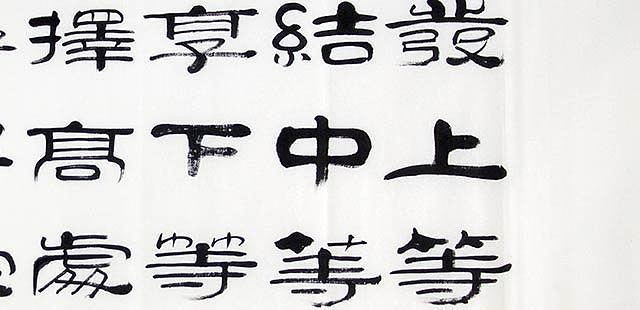 發上等
結中等
享下等
擇高處